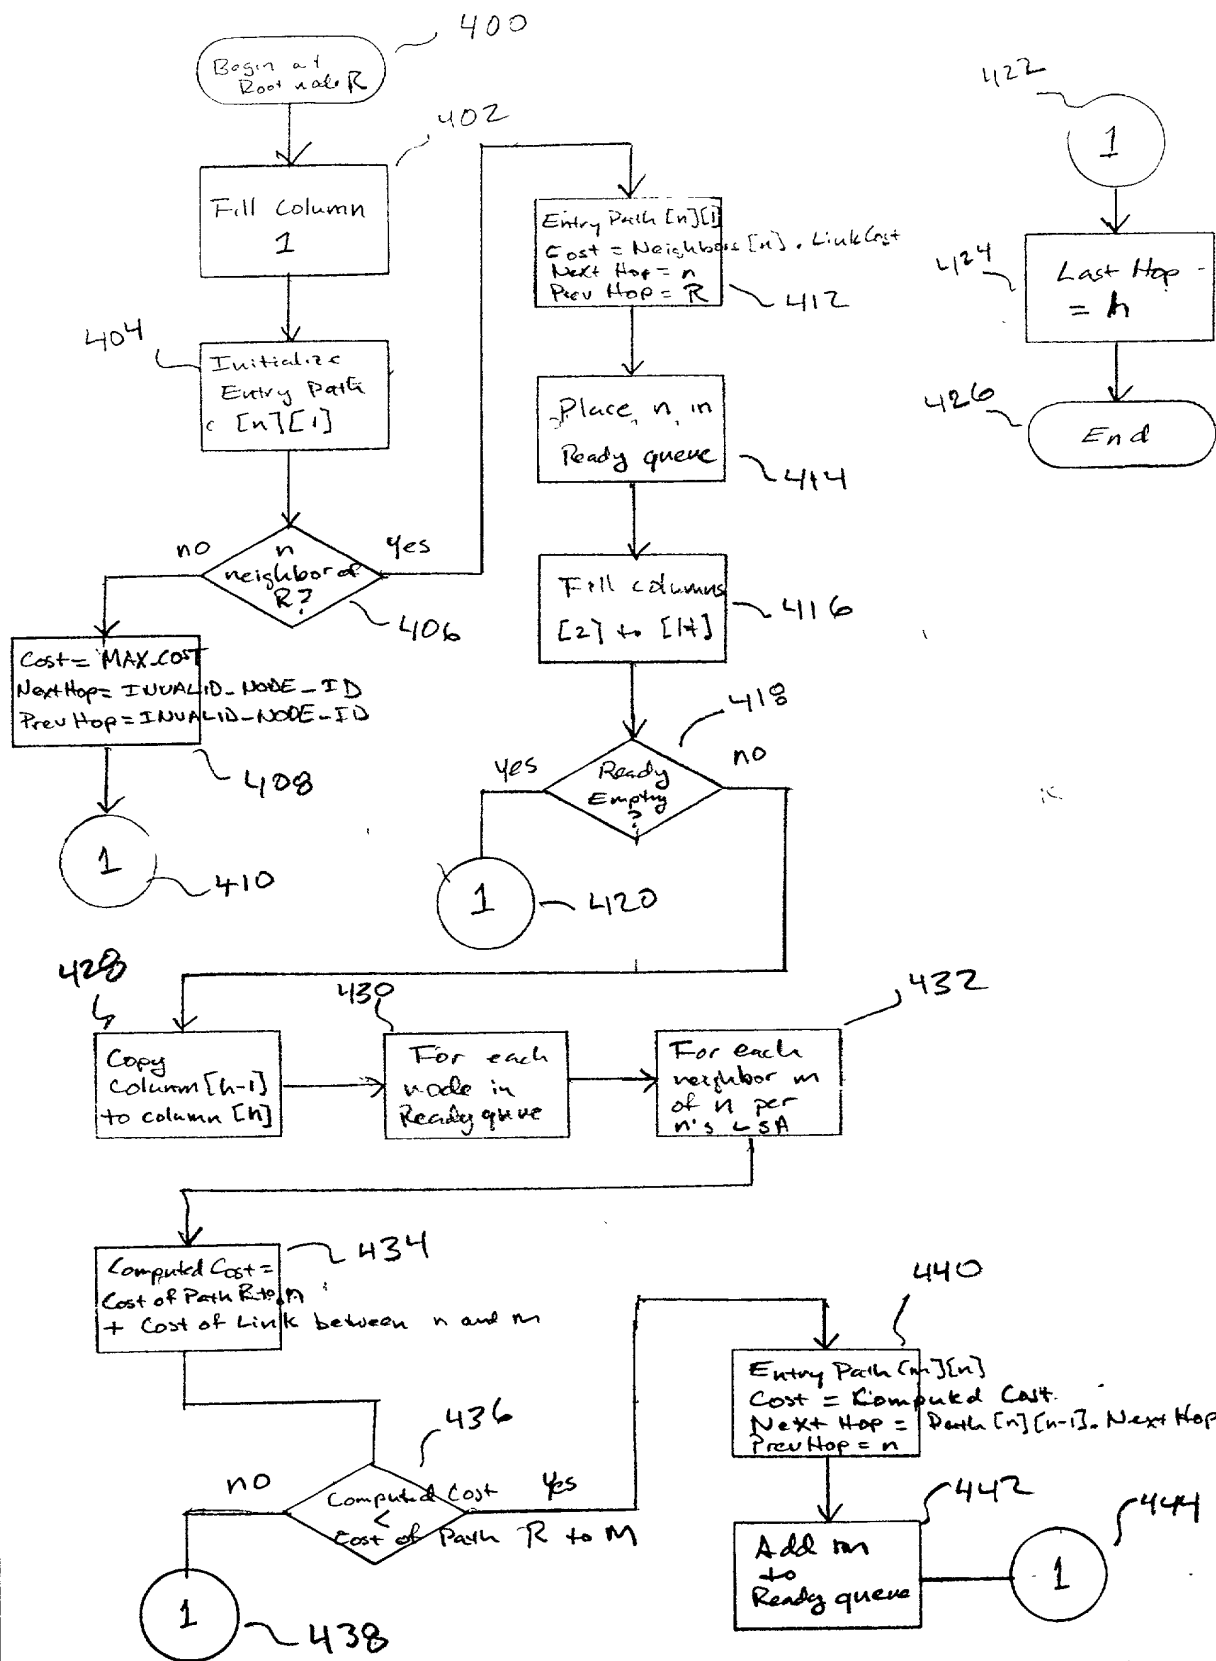 400
Begin at
Root node R
402
Fill Column
1
404
Initialize
Entry Path
[n][1]
no
n
neighbor of
R?
yes
406
Cost = MAX_COST
Next Hop = INVALID_NODE_ID
Prev Hop = INVALID_NODE_ID
408
1
410
Entry Path [n][1]
Cost = Neighbors [n] . Link Cost
Next Hop = n
Prev Hop = R
412
Place n in
Ready queue
414
Fill columns
[2] to [H]
416
418
yes
Ready
Empty
?
no
1
420
422
1
424
Last Hop
= h
426
End
428
Copy
Column [h-1]
to column [h]
430
For each
node in
Ready queue
432
For each
neighbor m
of n per
n's LSA
434
Computed Cost =
Cost of Path R to n
+ Cost of Link between n and m
436
no
Computed Cost
<
Cost of Path R to M
Yes
1
438
440
Entry Path [m][n]
Cost = Computed Cost.
Next Hop = Path [n][n-1]. Next Hop
Prev Hop = n
442
Add m
to
Ready queue
444
1